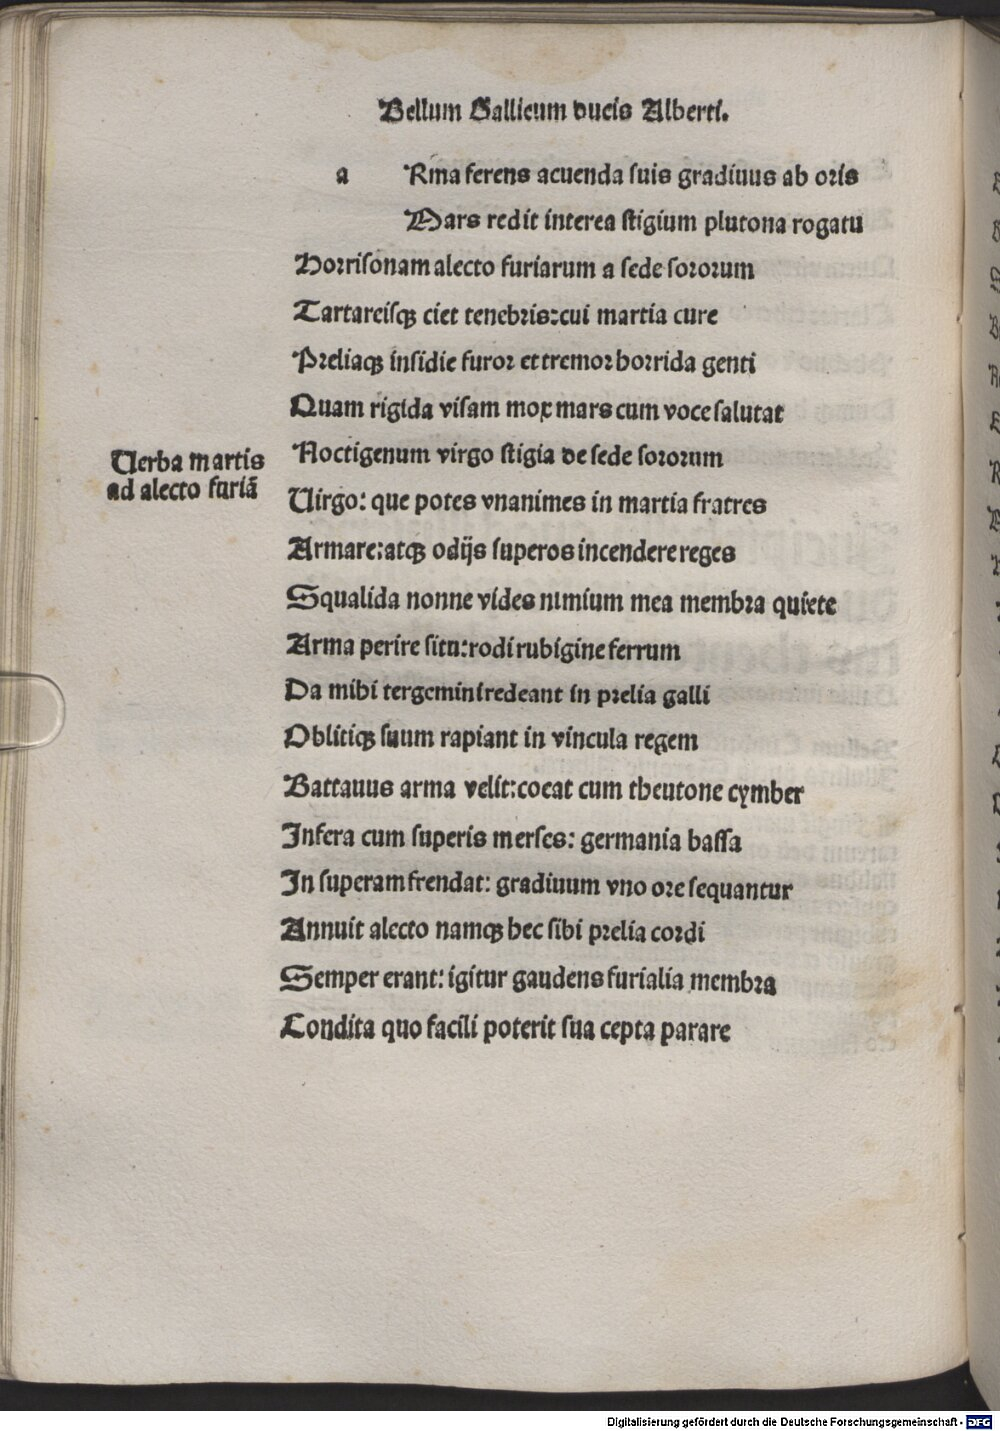 Bellum Gallicum ducis Alberti.
a Rma ferens acuenda suis gradiuus ab oris
Mars redit interea stigium plutona rogatu
Horrisonam alecto furiarum a sede sororum
Tartareisqꝫ ciet tenebris:cui martia cure
Preliaqꝫ insidie furor et tremor horrida genti
Quam rigida visam mox mars cum voce salutat
Noctigenum virgo stigia de sede sororum
Verba martis
ad alecto furiā
Virgo: que potes vnanimes in martia fratres
Armare:atqꝫ odijs superos incendere reges
Squalida nonne vides nimium mea membra quiete
Arma perire situ:rodi rubigine ferrum
Da mihi tergemini redeant in prelia galli
Oblitiqꝫ suum rapiant in vincula regem
Battauus arma velit:coeat cum theutone cymber
Infera cum superis merses: germania bassa
In superam frendat: gradiuum vno ore sequantur
Annuit alecto namqꝫ hec sibi prelia cordi
Semper erant: igitur gaudens furialia membra
Condita quo facili poterit sua cepta parare
Digitalisierung gefördert durch die Deutsche Forschungsgemeinschaft - DFG